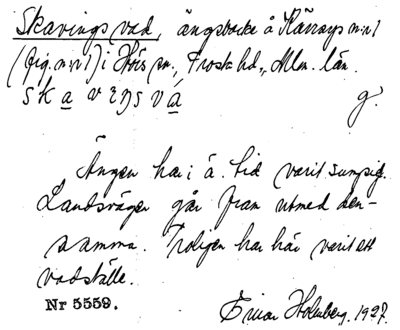 Skavings vad, ängsbacke å Kärrarps nr 1
(fig. nr 1) i Hörs sn., Frosta hd., Mlm. län.
s k a v e ŋ s v á g.
Ängen har i ä. tid varit sumpig.
Landsvägen går fram utmed den-
samma. Troligen har här varit ett
vadställe.
Nr 5559.
Einar Holmberg. 1927.